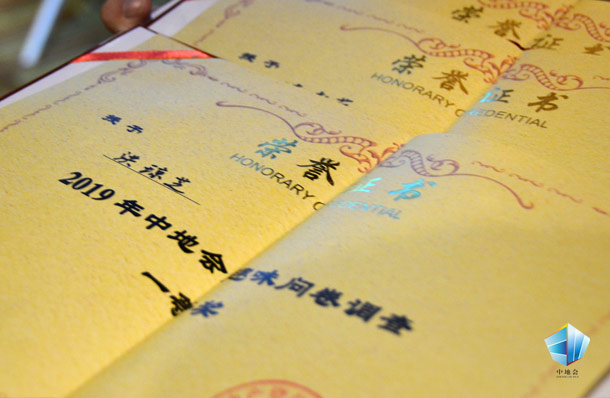 荣誉证书
荣誉证书
HONORARY CREDENTIAL
授予
荣誉证书
HONORARY CREDENTIAL
2019年中地会趣味问卷调查
一等奖
中地会